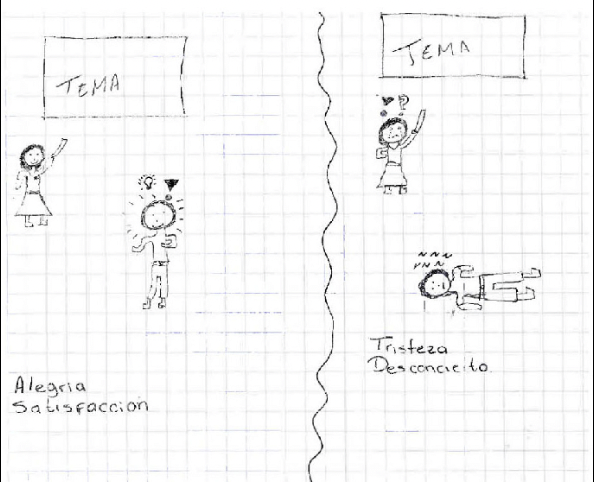 TEMA
Alegria
Satisfaccion
TEMA
Tristeza
Desconcieito